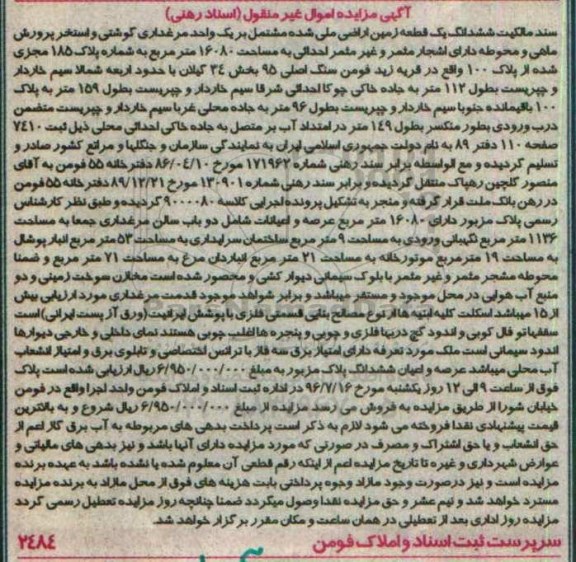 آگهی مزایده اموال غیر منقول (اسناد رهنی)
سند مالکیت ششدانگ یک قطعه زمین اراضی ملی شده مشتمل بر یک واحد مرغداری گوشتی و استخر پرورش
ماهی و محوطه دارای اشجار مثمر و غیر مثمر احداثی به مساحت ۱۶۰۸۰ متر مربع به شماره پلاک ۱۸۵ مجزی
شده از پلاک ۱۰۰ واقع در قریه زید فومن سنگ اصلی ۹۵ بخش ۲۴ گیلان با حدود اربعه شمالا سیم خاردار
و چپربست بطول ۱۱۲ متر به جاده خاکی چوکا احداثی شرقا سیم خاردار و چپربست بطول ۱۵۹ متر به پلاک
۱۰۰ باقیمانده جنوبا سیم خاردار و چپربست بطول ۹۶ متر به جاده محلی غربا سیم خاردار و چپربست متضمن
درب ورودی بطور منکسر بطول ۱۴۹ متر در امتداد آب بر متصل به جاده خاکی احداثی محلی ذیل ثبت ۷۴۱۰
صفحه ۱۱۰ دفتر ۸۹ به نام دولت جمهوری اسلامی ایران به نمایندگی سازمان و جنگلها و مراتع کشور صادر و
تسلیم گردیده و مع الواسطه برابر سند رهنی شماره ۱۷۱۹۶۲ مورخ ۸۶/۰۴/۱۰ دفترخانه ۵۵ فومن به آقای
منصور گلچین رهپاک منتقل گردیده و برابر سند رهنی شماره ۱۳۰۹۰۱ مورخ ۸۹/۱۲/۲۱ دفترخانه ۵۵ فومن
در رهن بانک ملت قرار گرفته و منجر به تشکیل پرونده اجرایی کلاسه ۹۰۰۰۰۸۰ گردیده و طبق نظر کارشناس
رسمی پلاک مزبور دارای ۱۶۰۸۰ متر مربع عرصه و اعیانات شامل دو باب سالن مرغداری جمعا به مساحت
۱۱۳۶ متر مربع نگهبانی ورودی به مساحت ۹ متر مربع ساختمان سرایداری به مساحت ۵۳ متر مربع انبار پوشال
به مساحت ۱۹ مترمربع موتورخانه به مساحت ۲۱ متر مربع انباردان مرغ به مساحت ۷۱ متر مربع و ضمنا
محوطه مشجر مثمر و غیر مثمر با بلوک سیمانی دیوار کشی و محصور شده است مخازن سوخت زمینی و دو
منبع آب هوایی در محل موجود و مستقر میباشد و برابر شواهد موجود قدمت مرغداری مورد ارزیابی بیش
از ۱۵ میباشد اسکلت کلیه ابنیه ها از نوع مصالح بنایی قسمتی فلزی با پوشش ایرانیت (ورق آز بست ایرانی) است
سقفها تو فال کوبی و اندود گچ دربها فلزی و چوبی و پنجره ها اغلب چوبی هستند نمای داخلی و خارجی دیوارها
اندود سیمانی است ملک مورد تعرفه دارای امتیاز برق سه فاز با ترانس اختصاصی و تابلوی برق و امتیاز انشعاب
آب محلی میباشد عرصه و اعیان ششدانگ پلاک مزبور به مبلغ ۶/۹۵۰/۰۰۰/۰۰۰ ریال ارزیابی شده است پلاک
فوق از ساعت ۹ الی ۱۲ روز یکشنبه مورخ ۹۶/۷/۱۶ در اداره ثبت اسناد و املاک فومن واحد اجرا واقع در فومن
خیابان شورا از طریق مزایده به فروش می رسد مزایده از مبلغ ۶/۹۵۰/۰۰۰/۰۰۰ ریال شروع و به بالاترین
قیمت پیشنهادی نقدا فروخته می شود لازم به ذکر است پرداخت بدهی های مربوطه به آب برق گاز اعم از
حق انشعاب و یا حق اشتراک و مصرف در صورتی که مورد مزایده دارای آنها باشد و نیز بدهی های مالیاتی و
عوارض شهرداری و غیره تا تاریخ مزایده اعم از اینکه رقم قطعی آن معلوم شده یا نشده باشد به عهده برنده
مزایده است و نیز درصورت وجود مازاد وجوه پرداختی بابت هزینه های فوق از محل مازاد به برنده مزایده
مسترد خواهد شد و نیم عشر و حق مزایده نقدا وصول میگردد ضمنا چنانچه روز مزایده تعطیل رسمی گردد
مزایده روز اداری بعد از تعطیلی در همان ساعت و مکان مقرر برگزار خواهد شد.
سرپرست ثبت اسناد و املاک فومن ۲۴۸۴